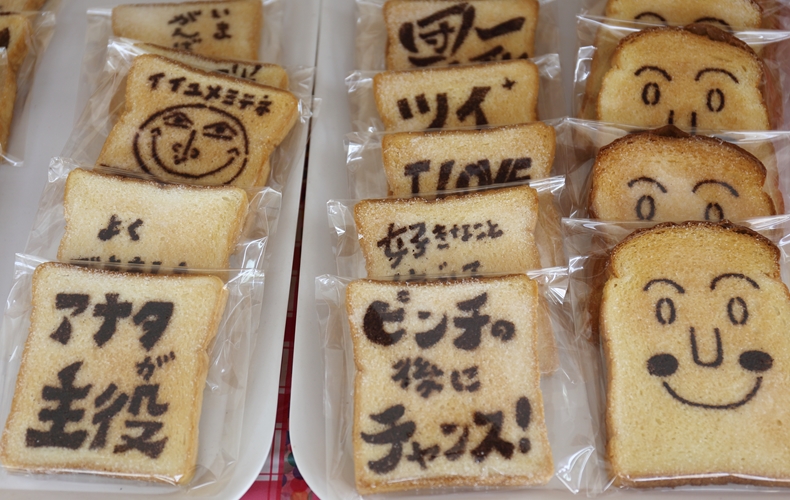 いま
がんば
イイユメミテネ
よく
アナタ
が
主役
一
ツイ
I LOVE
好きなこと
ピンチの
後に
チャンス!